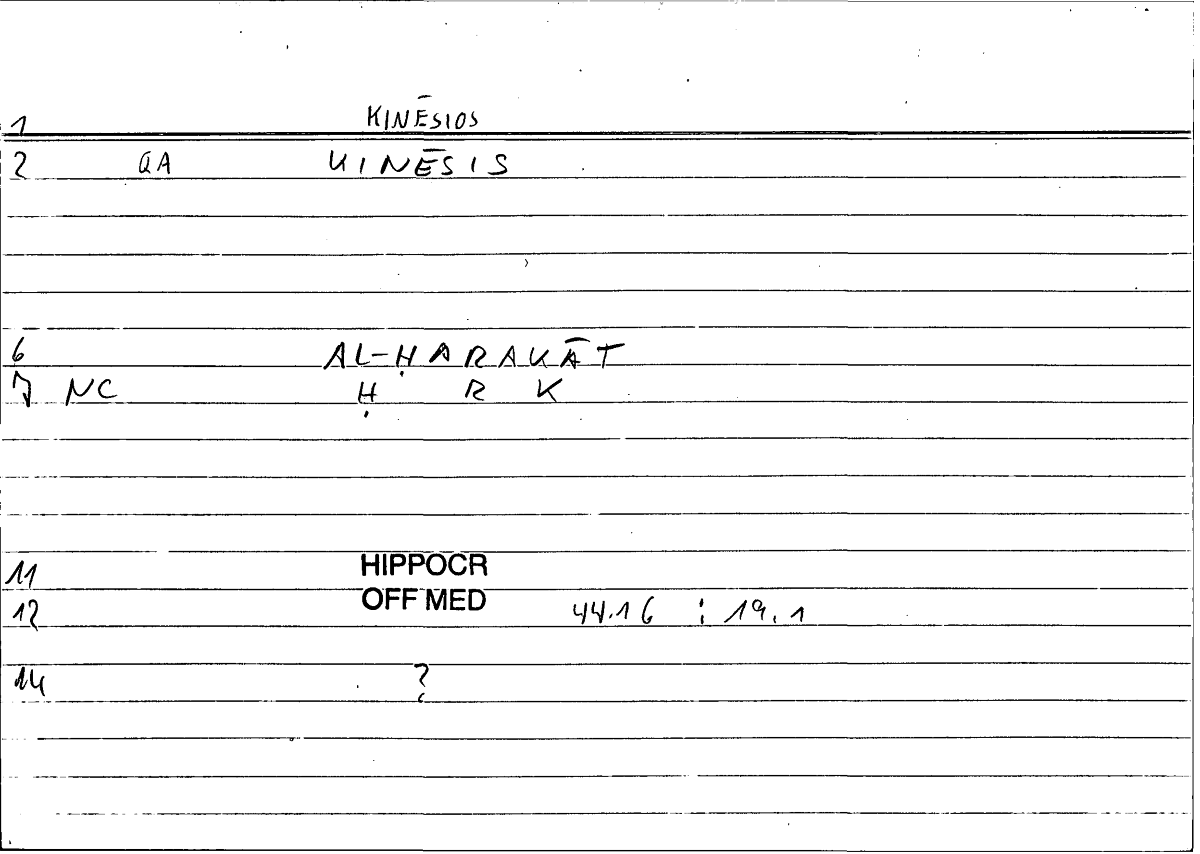 1 KINĒSIOS
2 QA KINĒSIS
6 AL-ḤARAKĀT
7 NC Ḥ R K
11 HIPPOCR
12 OFF MED 44.16 : 19.1
14 ?